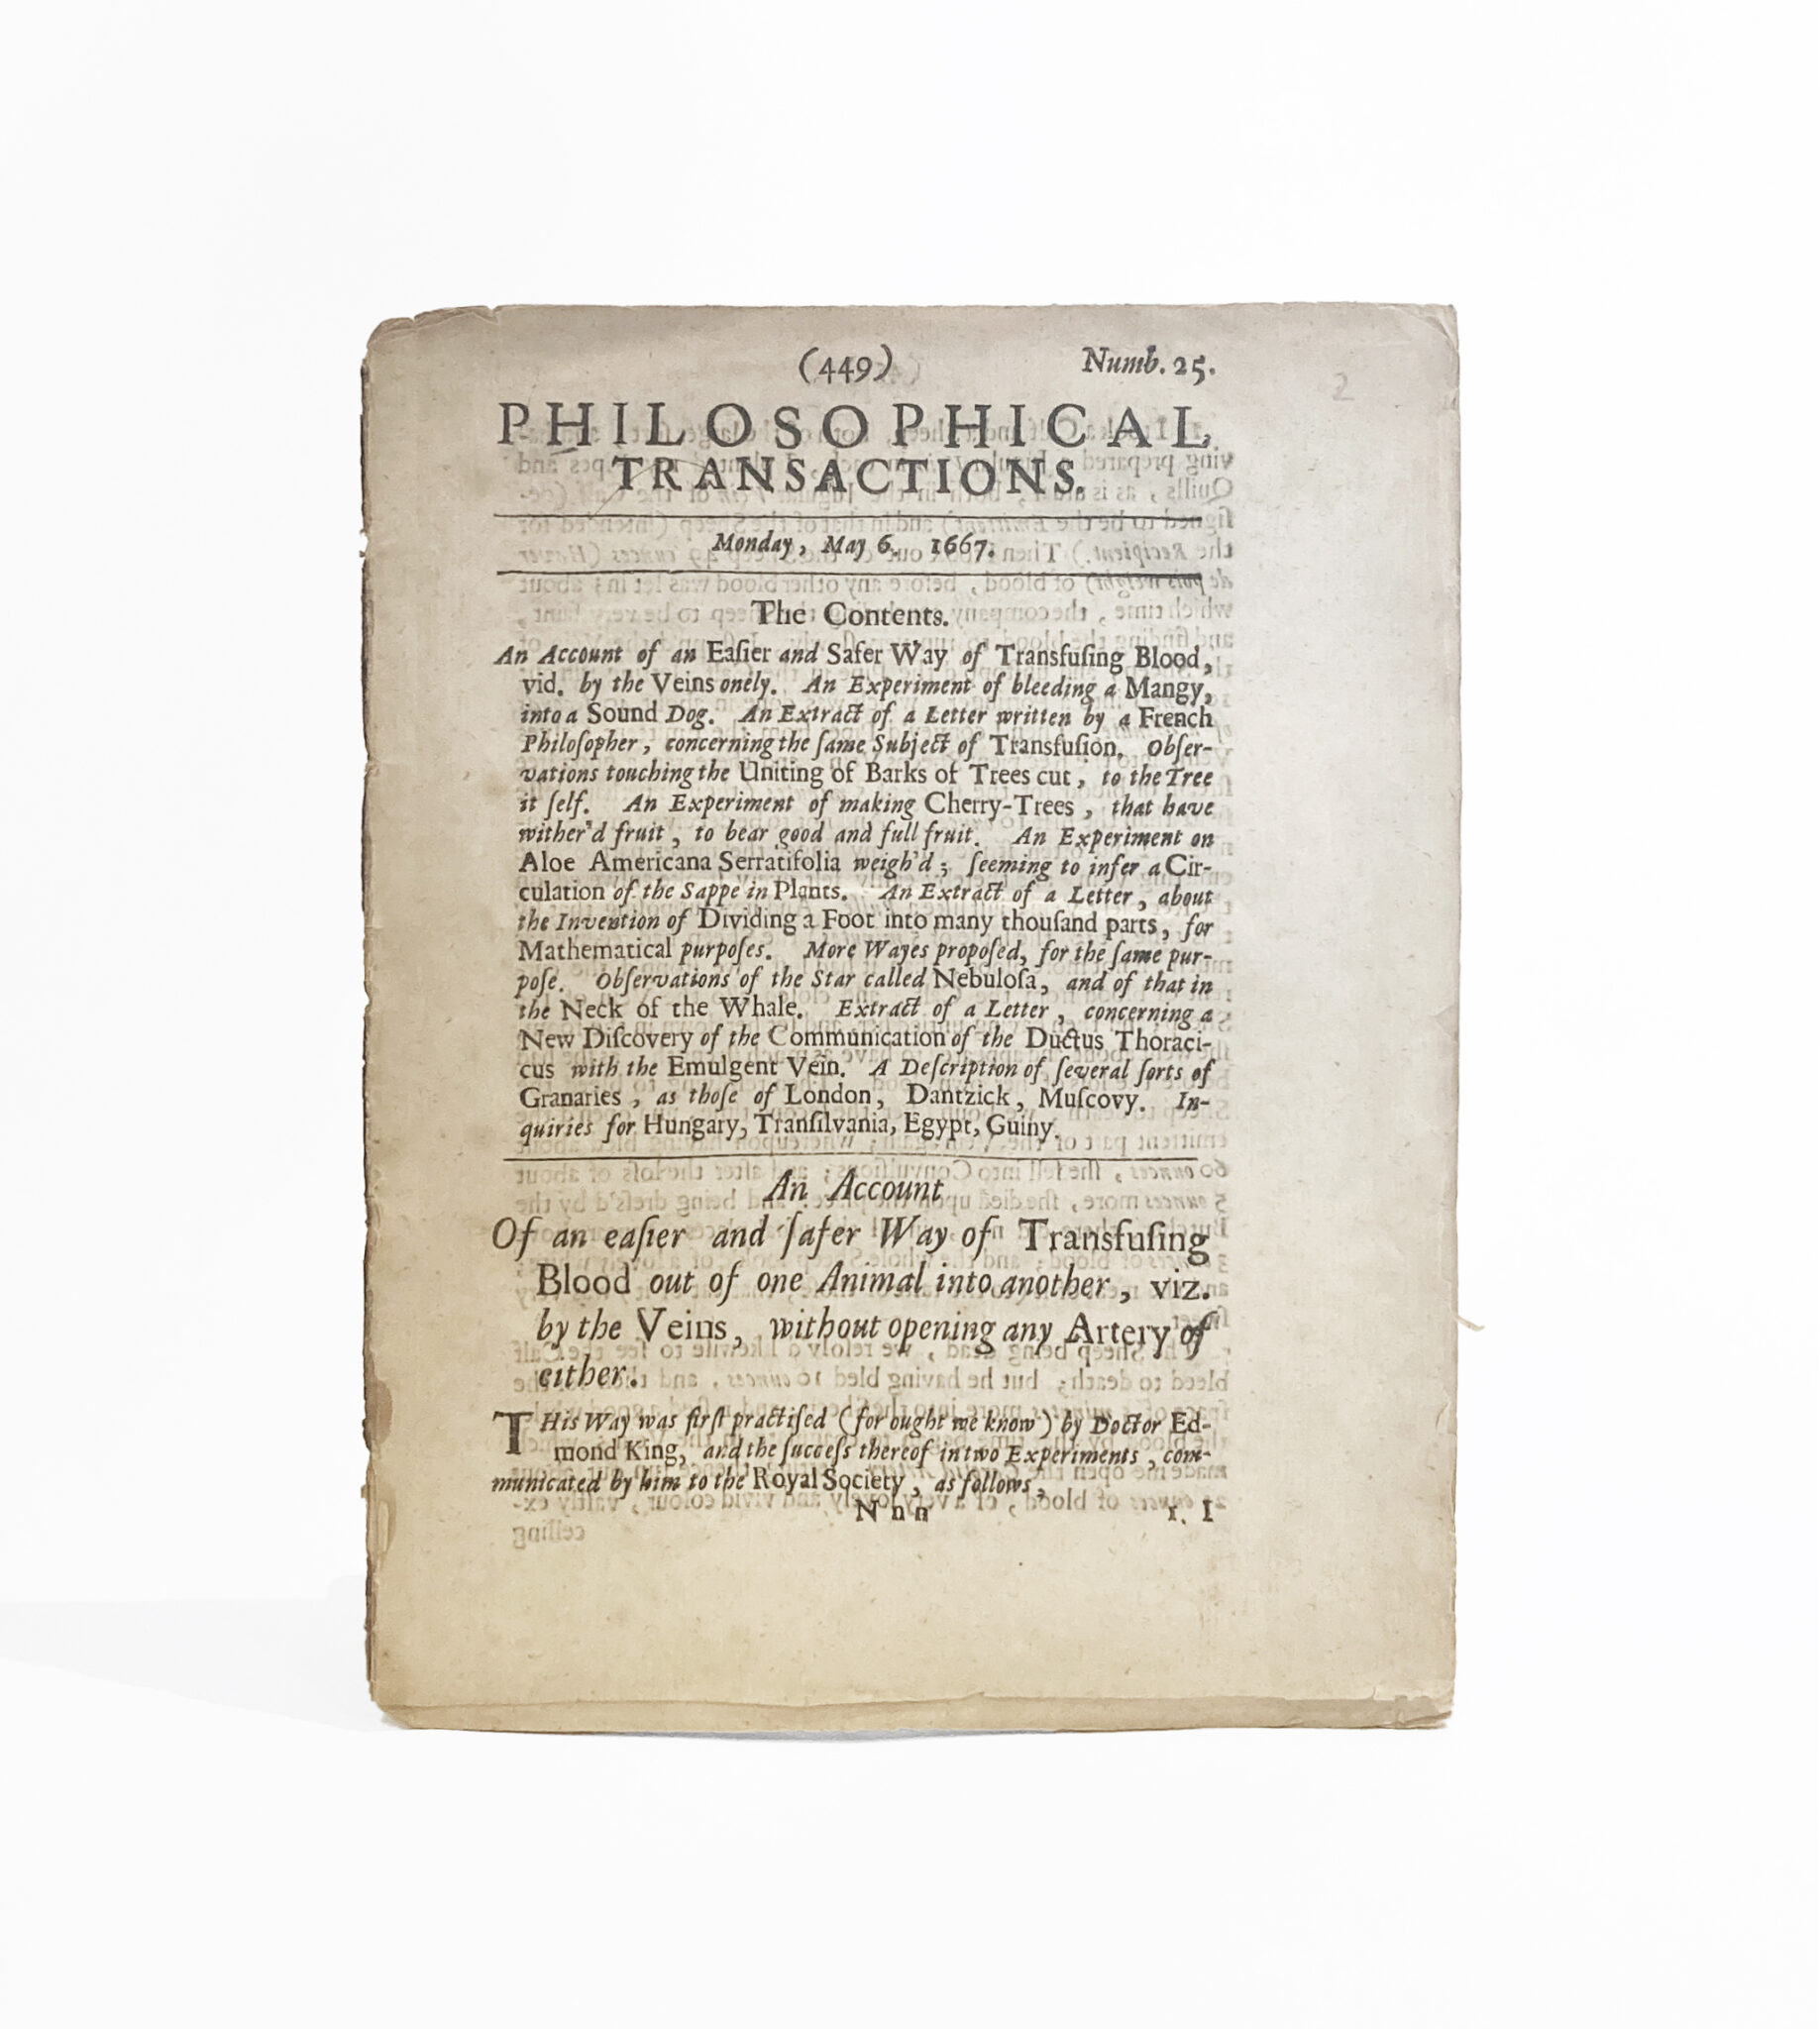 (449) Numb. 25.
2
PHILOSOPHICAL
TRANSACTIONS.
Monday, May 6. 1667.
The Contents.
An Account of an Eaſier and Safer Way of Transfuſing Blood,
vid. by the Veins onely. An Experiment of bleeding a Mangy,
into a Sound Dog. An Extract of a Letter written by a French
Philoſopher, concerning the ſame Subject of Transfuſion. Obſer-
vations touching the Uniting of Barks of Trees cut, to the Tree
it ſelf. An Experiment of making Cherry-Trees, that have
wither'd fruit, to bear good and full fruit. An Experiment on
Aloe Americana Serratifolia weigh'd; ſeeming to infer a Cir-
culation of the Sappe in Plants. An Extract of a Letter, about
the Invention of Dividing a Foot into many thouſand parts, for
Mathematical purpoſes. More Wayes propoſed, for the ſame pur-
poſe. Obſervations of the Star called Nebuloſa, and of that in
the Neck of the Whale. Extract of a Letter, concerning a
New Diſcovery of the Communication of the Ductus Thoraci-
cus with the Emulgent Vein. A Deſcription of ſeveral ſorts of
Granaries, as thoſe of London, Dantzick, Muſcovy. In-
quiries for Hungary, Tranſilvania, Egypt, Guiny.
An Account
Of an eaſier and ſafer Way of Transfuſing
Blood out of one Animal into another, viz.
by the Veins, without opening any Artery of
either.
THis Way was firſt practiſed (for ought we know) by Doctor Ed-
mond King, and the ſucceſs thereof in two Experiments, com-
municated by him to the Royal Society, as follows,
Nnn 1. I